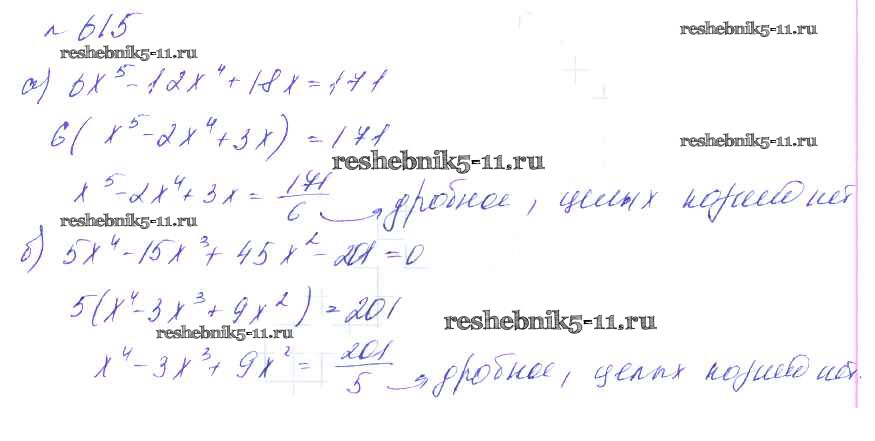 № 615
reshebnik5-11.ru
reshebnik5-11.ru
а) 6x⁵-12x⁴+18x=171
6(x⁵-2x⁴+3x)=171
reshebnik5-11.ru
reshebnik5-11.ru
x⁵-2x⁴+3x=171/6 → дробное, целых корней нет
reshebnik5-11.ru
б) 5x⁴-15x³+45x²-201=0
5(x⁴-3x³+9x²)=201
reshebnik5-11.ru
reshebnik5-11.ru
x⁴-3x³+9x²=201/5 → дробное, целых корней нет.